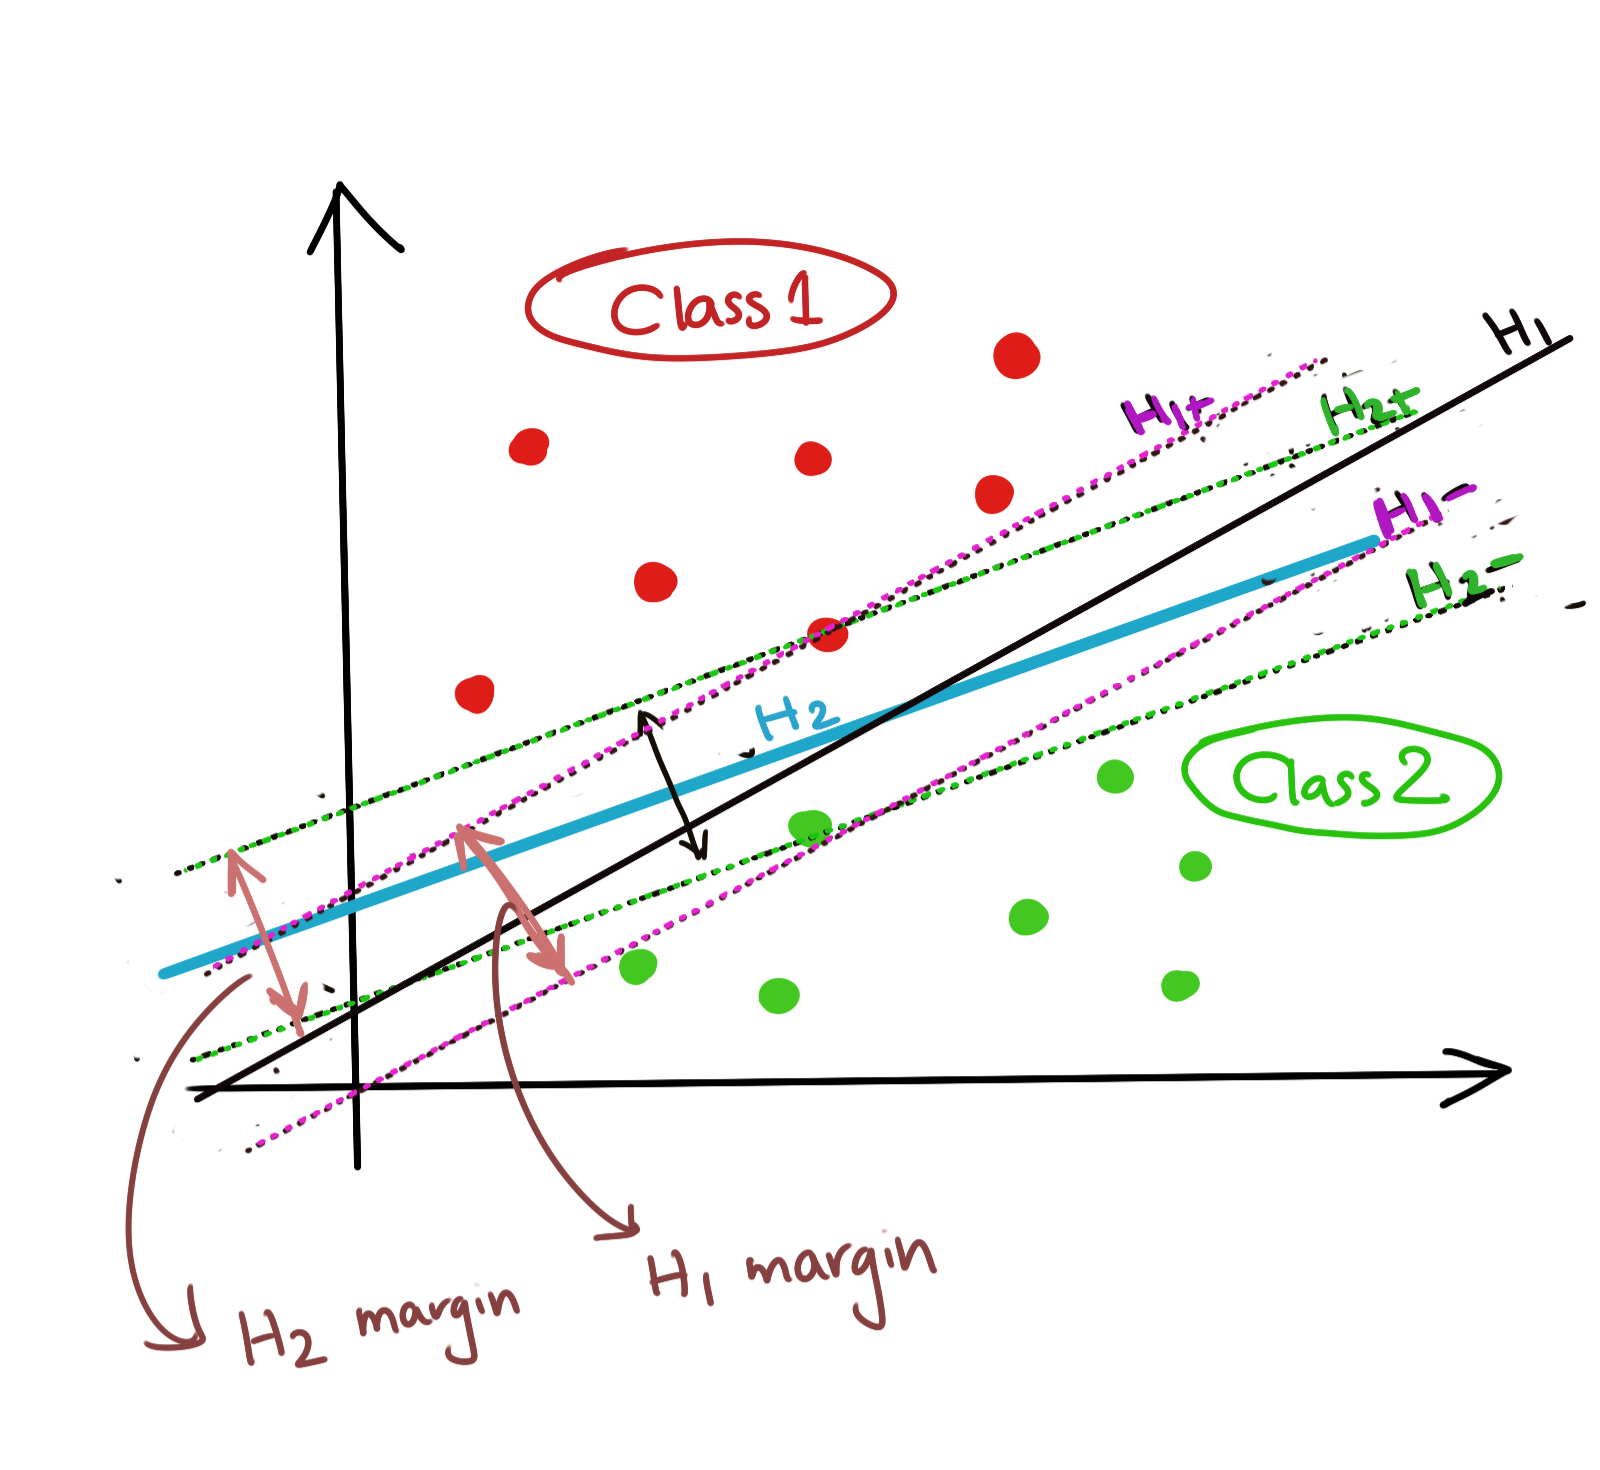 Class 1
H1
H1+
H2+
H1-
H2-
H2
Class 2
H1 margin
H2 margin